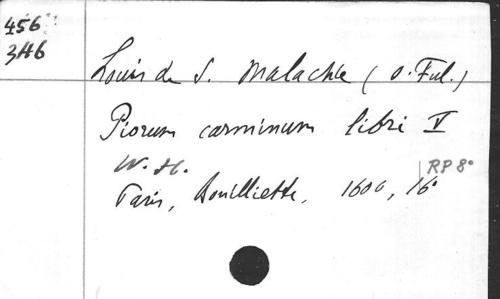 456
3H6
Louis de S. Malachie (O. Ful.)
Piorum carminum libri V
W. H.
RP 8°
Paris, Bouilliette, 1600, 16°